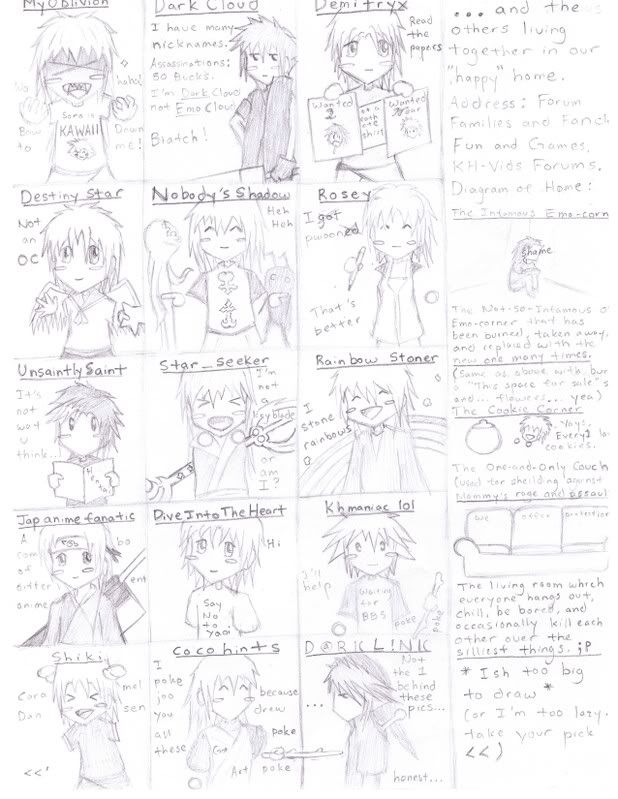 MyOblivion
No
haha!
Bow
to
Sora is
KAWAII
Down
me!
Dark Cloud
I have many
nicknames.
Assassinations:
50 Bucks.
I'm Dark Cloud
not Emo Cloud
Biatch!
Demitryx
Read
the
papers
Wanted
Wanted
Destiny Star
Not
an
OC
Nobody's Shadow
Heh
Heh
Rosey
I got
pwooned
That's
better
Unsaintly Saint
It's
not
wat
u
think...
Hentai
Star_Seeker
I'm
not
a
Keyblade
or
am
I?
Rainbow Stoner
I
stone
rainbows
Jap anime fanatic
A
com
of
differ
anime
bo
ent
DiveIntoTheHeart
Hi
Say
No
to
yaoi
Khmaniac lol
I'll
help
Waiting
for
BBS
poke
poke
Shiki
Cara
Dan
mel
sen
<<'
Cocohints
I
poke
joo
you
all
these
because
drew
poke
Art
poke
D@RKL!NK
...
Not
the 1
behind
these
pics...
honest...
... and the
others living
together in our
"happy" home.
Address: Forum
Families and Fanch
Fun and Games,
KH-Vids Forums.
Diagram of Home:
The Infamous Emo-corn
Shame
The Not-So-Infamous
Emo-corner that has
been burned, taken away
and replaced with the
new one many times.
(Same as above with
a "This space for sale" s
and... flowers... yea)
The Cookie Corner
Yays,
cookies.
The One-and-Only Couch
(used for sheilding against
Mommy's rage and assaul
we
offer
protection
The living room which
everyone hangs out,
chill, be bored, and
occasionally kill each
other over the
silliest things. ;P
* Ish too big
to draw *
(or I'm too lazy.
take your pick
<<)